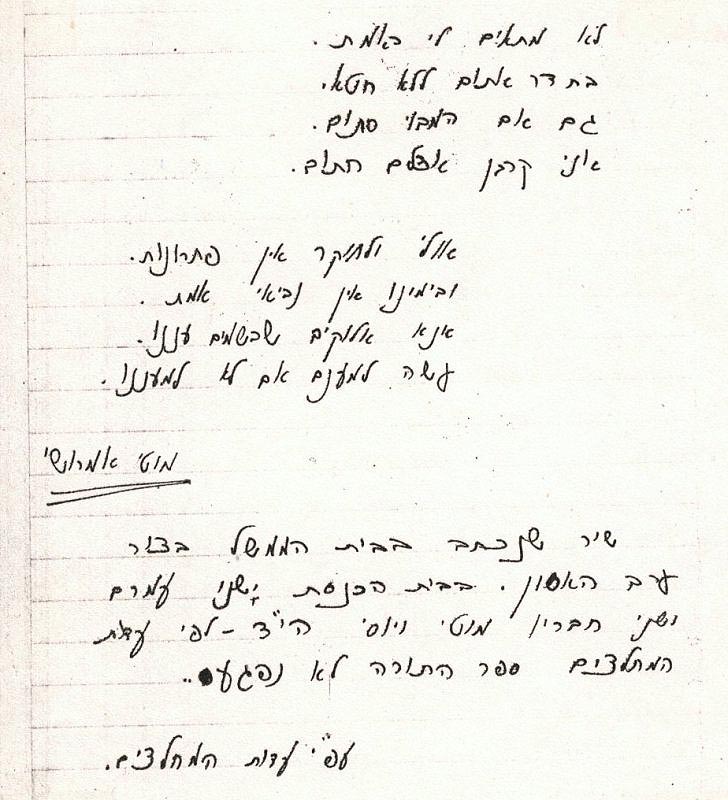 לא מתאים לי באמת.
בחדר אטום ללא חטא.
גם אם המבוי סתום.
אני קרבן אצלם חתום.
אולי ולחוקר אין פתרונות.
ובימינו אין נביאי אמת.
אנא אלוקים שבשמים עננו.
עשה למענם אם לא למעננו.
מוטי אמרושי
שיר שנכתב בבית הממשל בצור
ערב האסון. בבית הכנסת ישנו עמרם
ושני חבריו מוטי ויוסי הי"ד - לפי עדות
המחלצים ספר התורה לא נפגע..
עפ"י עדות המחלצים.